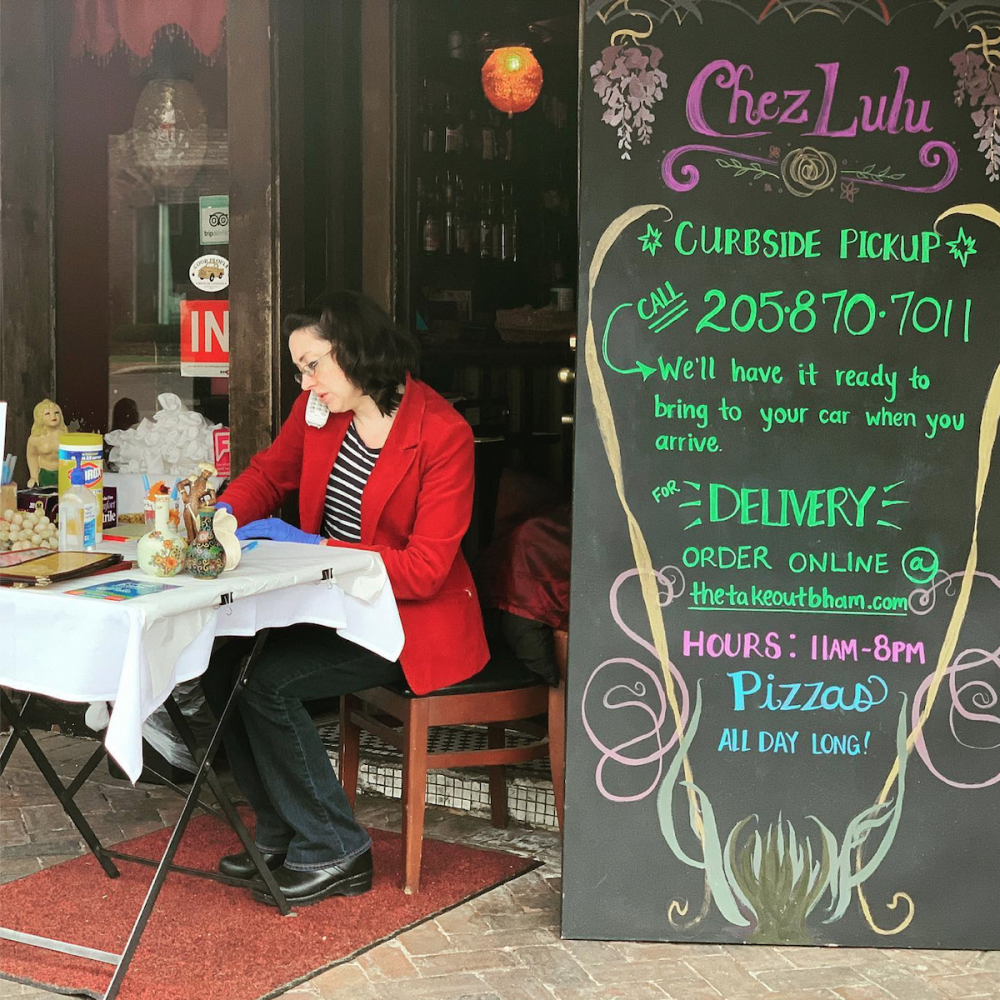 Chez Lulu
CURBSIDE PICKUP
CALL 205·870·7011
We'll have it ready to
bring to your car when you
arrive.
FOR DELIVERY
ORDER ONLINE @
thetakeoutbham.com
HOURS: 11AM-8PM
Pizzas
ALL DAY LONG!
IN